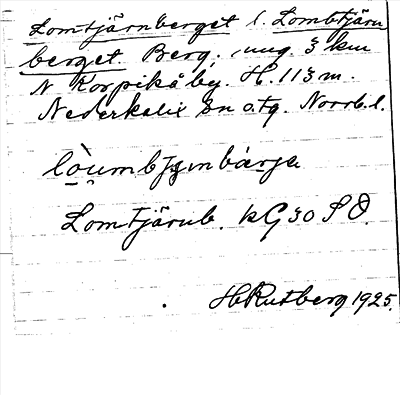 Lomtjärnberget l. Lombtjärn
berget. Berg, ung. 3 km
N Korpikå by. H. 113 m.
Nederkalix sn o. tg. Norrb. l.
lòumbʃɐnbárja
Lomtjärnb. kG 30 SO.
H Rutberg 1925.